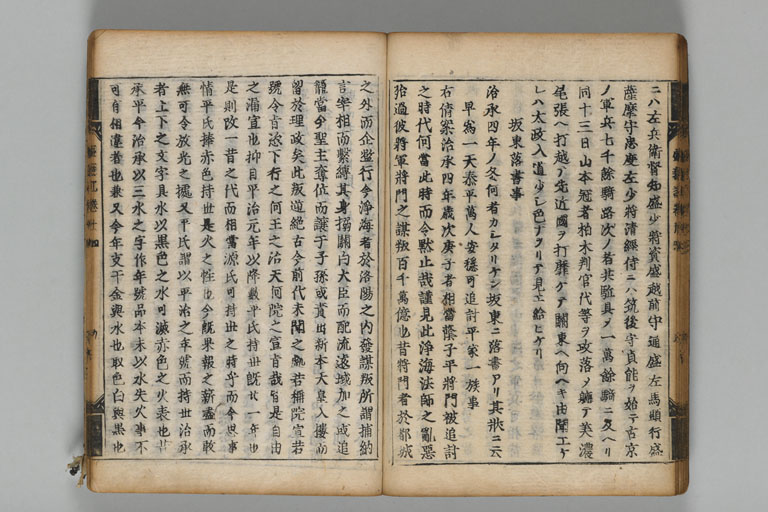 二ハ左兵衛督知盛少将資盛越前守通盛左馬頭行盛
薩摩守忠度左少将清經侍ニハ筑後守貞能ヲ始テ古京
ノ軍兵七千餘騎路次ノ者共駈具ヲ一萬餘騎ニ及ヘリ
同十三日山本冠者柏木判官代等ヲ攻落ノ軈テ美濃
尾張ヘ打越テ先近國ヲ打靡ケテ關東ヘ向ヘキ由聞エケ
レハ太政入道少シ色ナヲリテ見エ給ヒケリ
坂東落書事
治承四年ノ冬何者カシタリケン坂東ニ落書アリ其状ニ云
早為一天泰平萬人安穏可追討平家一族事
右倩案治承四年歳次庚子者相當蔭子平將門被追討
之時代何當此時而令黙止哉謹見此淨海法師之亂惡
殆過彼将軍將門之謀叛百千萬億也昔將門者於都城
之外而企監行今淨海者於洛陽之内發謀叛所謂捕納
言宰相而繫縛其身搦關白大臣而配流遠域加之或追
籠當今聖主奪位而讓于子孫或責出新本天皇入樓而
留於理政矣此叛逆絶古今前代未聞之處若稱院宣若
號令旨恣下行之何王之治天何院之宣旨哉皆是自由
之漏宣也抑自平治元年以降數平氏持世既廿一年也
是則改一昔之代而相當源氏可持世之時乎而今思事
情平氏捧赤色持世是火之性也今既果報之薪盡而敢
無可令放光之處又平氏謂以平治之年號而持世治承
者上下之文字具水以黒色之水可滅赤色之火表也
承平今治承以三水之字作年號品本末以水失火事不
可有相違者也兼又今年支干金與水也取色白與黒也